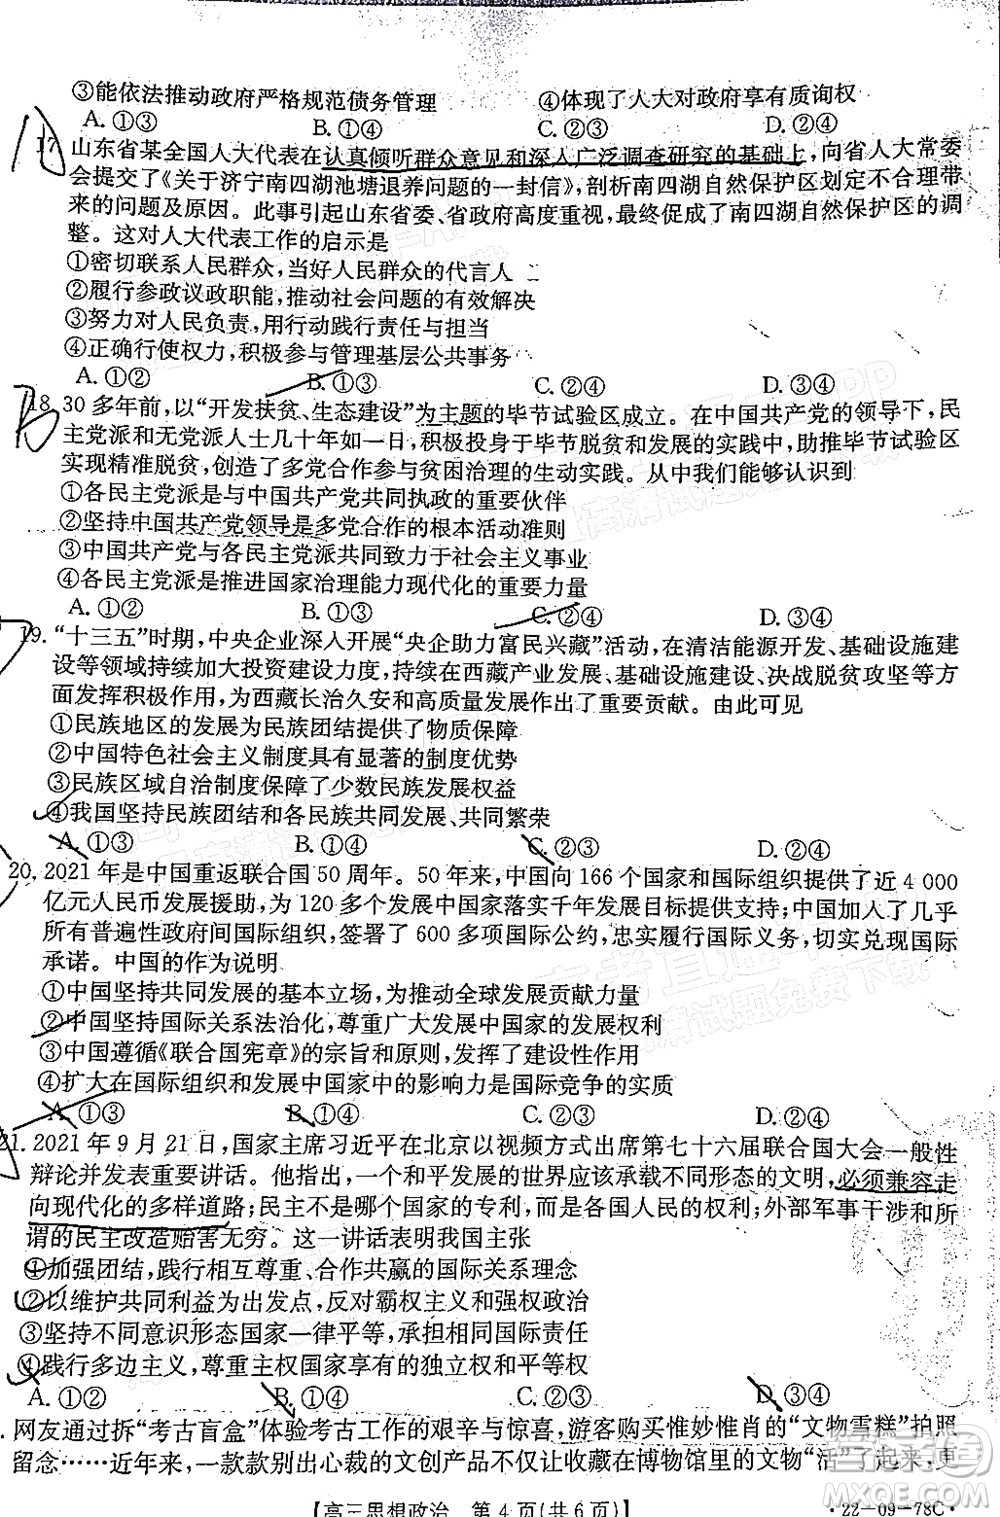 ③能依法推动政府严格规范债务管理 ④体现了人大对政府享有质询权
A. ①③ B. ①④ C. ②③ D. ②④
17. 山东省某全国人大代表在认真倾听群众意见和深入广泛调查研究的基础上，向省人大常委
会提交了《关于济宁南四湖池塘退养问题的一封信》，剖析南四湖自然保护区划定不合理带
来的问题及原因。此事引起山东省委、省政府高度重视，最终促成了南四湖自然保护区的调
整。这对人大代表工作的启示是
①密切联系人民群众，当好人民群众的代言人
②履行参政议政职能，推动社会问题的有效解决
③努力对人民负责，用行动践行责任与担当
④正确行使权力，积极参与管理基层公共事务
A. ①② B. ①③ C. ②④ D. ③④
18. 30 多年前，以“开发扶贫、生态建设”为主题的毕节试验区成立。在中国共产党的领导下，民
主党派和无党派人士几十年如一日，积极投身于毕节脱贫和发展的实践中，助推毕节试验区
实现精准脱贫，创造了多党合作参与贫困治理的生动实践。从中我们能够认识到
①各民主党派是与中国共产党共同执政的重要伙伴
②坚持中国共产党领导是多党合作的根本活动准则
③中国共产党与各民主党派共同致力于社会主义事业
④各民主党派是推进国家治理能力现代化的重要力量
A. ①② B. ①③ C. ②④ D. ③④
19. “十三五”时期，中央企业深入开展“央企助力富民兴藏”活动，在清洁能源开发、基础设施建
设等领域持续加大投资建设力度，持续在西藏产业发展、基础设施建设、决战脱贫攻坚等方
面发挥积极作用，为西藏长治久安和高质量发展作出了重要贡献。由此可见
①民族地区的发展为民族团结提供了物质保障
②中国特色社会主义制度具有显著的制度优势
③民族区域自治制度保障了少数民族发展权益
④我国坚持民族团结和各民族共同发展、共同繁荣
A. ①③ B. ①④ C. ②③ D. ②④
20. 2021 年是中国重返联合国 50 周年。50 年来，中国向 166 个国家和国际组织提供了近 4 000
亿元人民币发展援助，为 120 多个发展中国家落实千年发展目标提供支持；中国加入了几乎
所有普遍性政府间国际组织，签署了 600 多项国际公约，忠实履行国际义务，切实兑现国际
承诺。中国的作为说明
①中国坚持共同发展的基本立场，为推动全球发展贡献力量
②中国坚持国际关系法治化，尊重广大发展中国家的发展权利
③中国遵循《联合国宪章》的宗旨和原则，发挥了建设性作用
④扩大在国际组织和发展中国家中的影响力是国际竞争的实质
A. ①③ B. ①④ C. ②③ D. ②④
21. 2021 年 9 月 21 日，国家主席习近平在北京以视频方式出席第七十六届联合国大会一般性
辩论并发表重要讲话。他指出，一个和平发展的世界应该承载不同形态的文明，必须兼容走
向现代化的多样道路；民主不是哪个国家的专利，而是各国人民的权利；外部军事干涉和所
谓的民主改造贻害无穷。这一讲话表明我国主张
①加强团结，践行相互尊重、合作共赢的国际关系理念
②以维护共同利益为出发点，反对霸权主义和强权政治
③坚持不同意识形态国家一律平等，共同担负国际责任
④践行多边主义，尊重主权国家享有的独立权和平等权
A. ①② B. ①④ C. ②③ D. ③④
. 网友通过拆“考古盲盒”体验考古工作的艰辛与惊喜，游客购买惟妙惟肖的“文物雪糕”拍照
留念……近年来，一款款别出心裁的文创产品不仅让收藏在博物馆里的文物“活”了起来，更
【高三思想政治 第 4 页(共 6 页)】 ·22-09-78C·